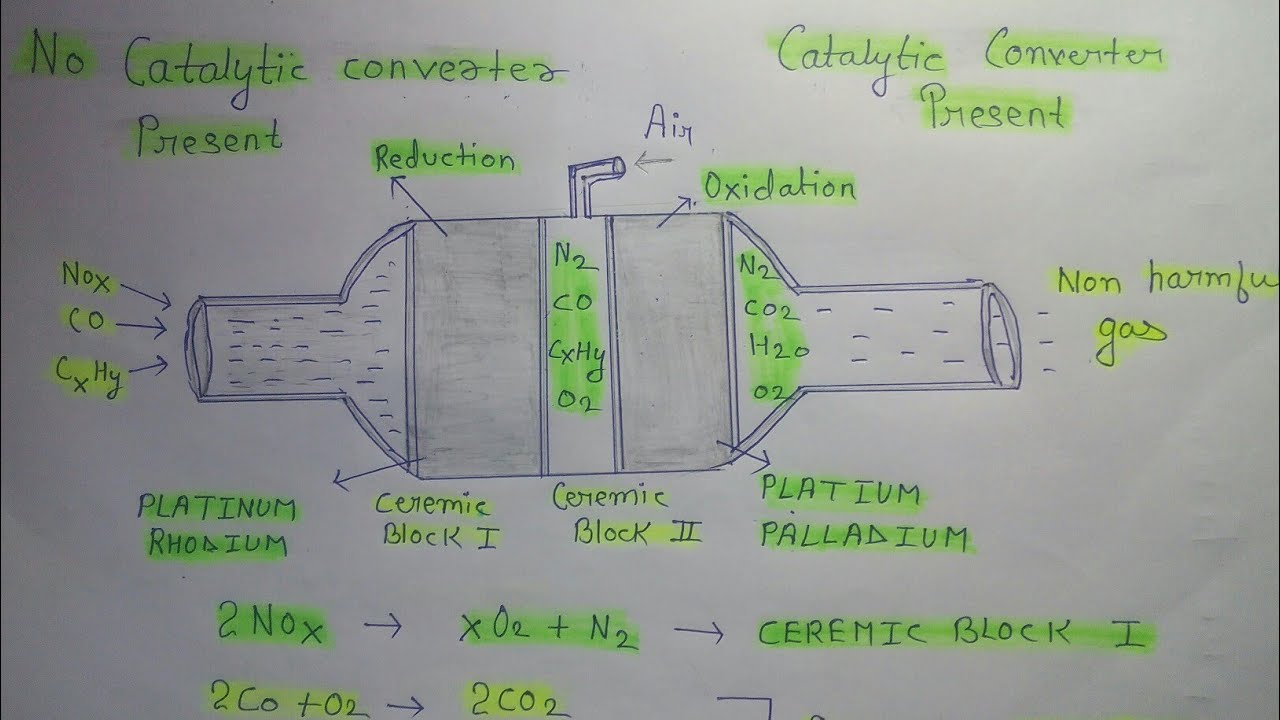 No Catalytic converter
Present
Catalytic Converter
Present
Air
Reduction
Oxidation
NOx
CO
CxHy
N2
CO
CxHy
O2
N2
CO2
H2O
O2
Non harmfu
gas
PLATINUM
RHODIUM
Ceremic
Block I
Ceremic
Block II
PLATIUM
PALLADIUM
2NOx → xO2 + N2 → CEREMIC BLOCK I
2Co + O2 → 2CO2